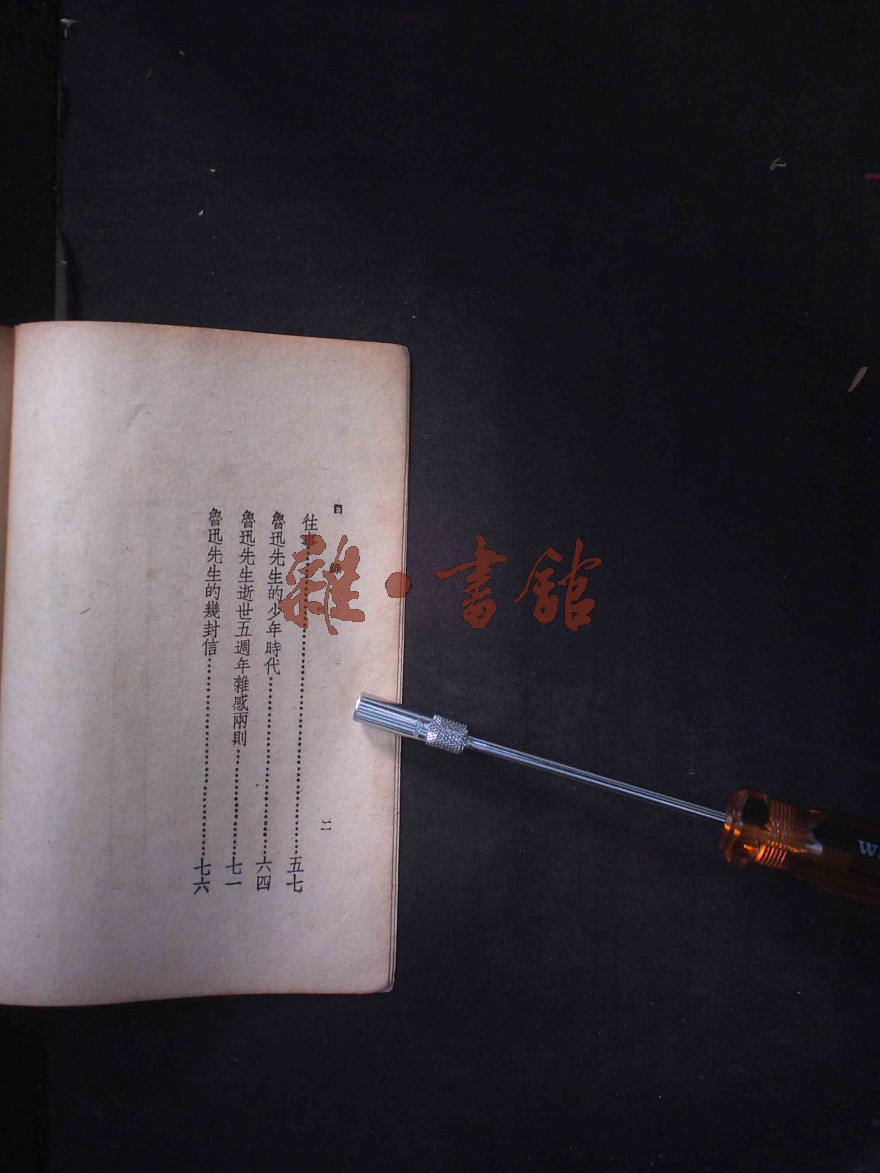 目錄
二
往事……五七
魯迅先生的少年時代……六四
魯迅先生逝世五週年雜感兩則……七一
魯迅先生的幾封信……七六
雜·書館
W